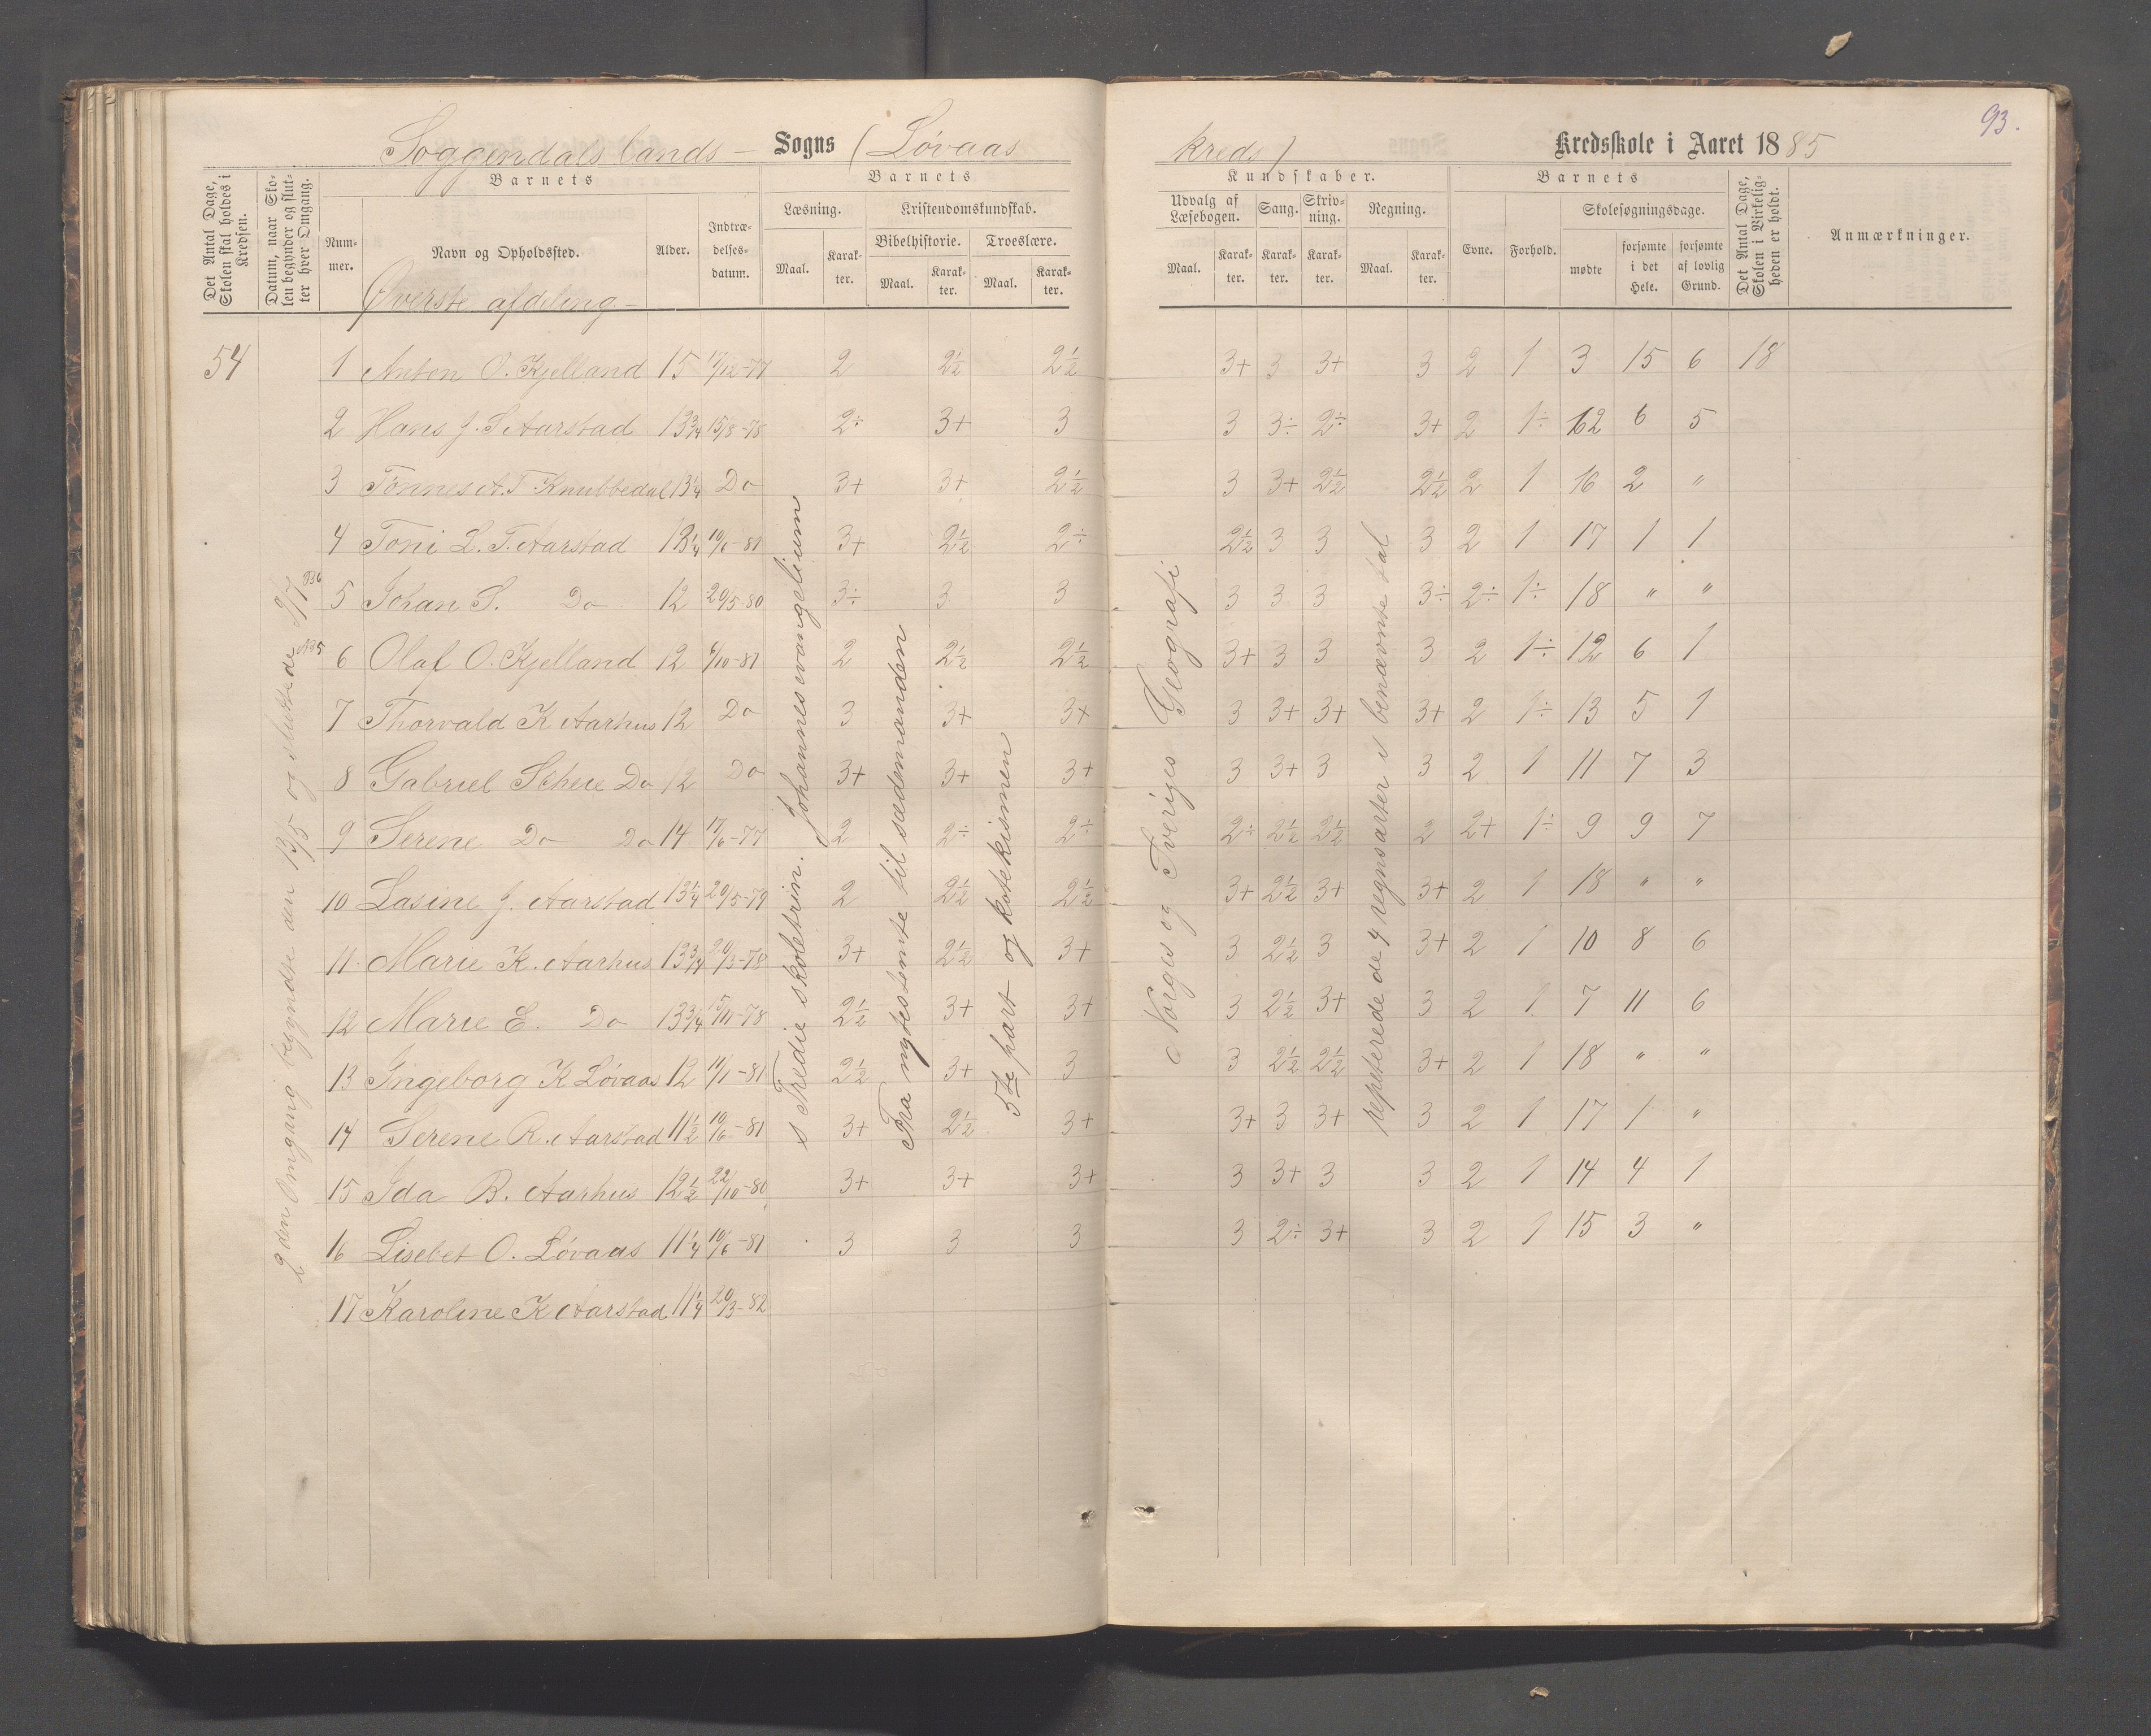 93.
Soggendals lands - Sogns (Løvaas kreds) Kredsskole i Aaret 1885
Det Antal Dage, Skolen skal holdes i Kredsen.
Datum, naar Skolen begynder og slutter hver Omgang.
Barnets
Nummer.
Navn og Opholdssted.
Alder.
Indtrædelsesdatum.
Barnets
Læsning.
Maal.
Karakter.
Kristendomskundskab.
Bibelhistorie.
Maal.
Karakter.
Troeslære.
Maal.
Karakter.
Kundskaber.
Udvalg af Læsebogen.
Maal.
Karakter.
Sang.
Karakter.
Skrivning.
Karakter.
Regning.
Maal.
Karakter.
Barnets
Evne.
Forhold.
Skolesøgningsdage.
mødte
forsømte i det Hele.
forsømte af lovlig Grund.
Det Antal Dage, Skolen i Virkeligheden er holdt.
Anmærkninger.
Øverste afdeling -
54 1 Anton O. Kjelland 15 17/12-77 2 2½ 2½ 3+ 3 3+ 3 2 1 3 15 6 18
2 Hans J. S Aarstad 13¾ 15/8-78 2÷ 3+ 3 3 3÷ 2÷ 3+ 2 1÷ 12 6 5
3 Tønnes A. T. Knubbedal 13¼ Do 3+ 3+ 2½ 3 3+ 2½ 2½ 2 1 16 2 "
4 Toni L. T. Aarstad 13¼ 10/6-81 3+ 2½ 2÷ 2½ 3 3 3 2 1 17 1 1
5 Johan S. Do 12 20/5-80 3÷ 3 3 3 3 3 3÷ 2÷ 1÷ 18 " "
6 Olaf O. Kjelland 12 6/10-81 2 2½ 2½ 3+ 3 3 3 2 1÷ 12 6 1
7 Thorvald K Aarhus 12 Do 3 3+ 3+ 3 3+ 3+ 3+ 2 1÷ 13 5 1
8 Gabriel Scheie Do 12 Do 3+ 3+ 3+ 3 3+ 3 3 2 1 11 7 3
9 Serene Do Do 14 17/6-77 2 2÷ 2÷ 2÷ 2½ 2½ 2 2+ 1÷ 9 9 7
10 Lasine J. Aarstad 13¼ 20/5-79 2 2½ 2½ 3+ 2½ 3+ 3+ 2 1 18 " "
11 Marie K. Aarhus 13¾ 20/3-78 3+ 2½ 3+ 3 2½ 3 3+ 2 1 10 8 6
12 Marie E. Do 13¾ 15/11-78 2½ 3+ 3+ 3 2½ 3+ 3 2 1 7 11 6
13 Ingeborg K Løvaas 12 11/1-81 2½ 3+ 3 3 2½ 2½ 3+ 2 1 18 " "
14 Serene R. Aarstad 11½ 10/6-81 3+ 2½ 3+ 3+ 3 3+ 3 2 1 17 1 "
15 Ida B. Aarhus 12½ 22/10-80 3+ 3+ 3+ 3 3+ 3 3 2 1 14 4 1
16 Lisebet O. Løvaas 11¼ 10/6-81 3 3 3 3 2÷ 3+ 3 2 1 15 3 "
17 Karoline K Aarstad 11¼ 20/3-82
2den Omgang begyndte den 13/5 og sluttede 9/7
s Tredie skoletrin. Johannesevangelium
Fra nytestemte til sædemanden
5te part og katekismen
Norges og Sveriges Geografi
repeterede de 4 regnsarter i benævnte tal